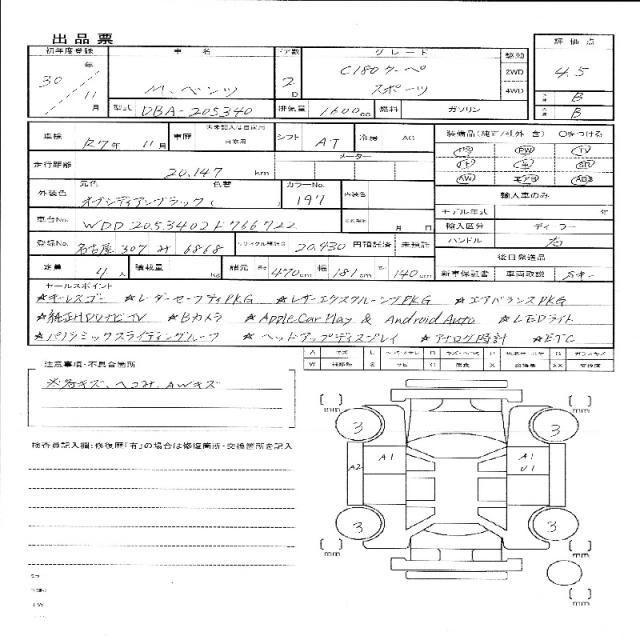 出品票
初年度登録 車名 ドア数 グレード 駆動 評価点
30年 11月 M.ベンツ 2D C180クーペ スポーツ 2WD 4WD 4.5
型式 DBA-205340 排気量 1600cc 燃料 ガソリン B B
車検 R7年 11月 車歴 シフト AT 冷房 AC 装備品(純正/社外 含) ○をつける
PS PW TV
走行距離 20,147 km メーター
AW エアB
元色 色替 カラーNo. 輸入車のみ
外装色 オブシディアンブラック ( ) 197 内装色
モデル年式 年
車台No. WDD2053402F766722 月 日 輸入区分 ディーラー
登録No. 名古屋 307 み 6868 リサイクル預託金 20,430 円預託済 未預託 ハンドル 右
後日発送品
定員 4人 積載量 Kg 諸元 長 470cm 幅 181cm 高 140cm 新車保証書 車両取説
セールスポイント
★キーレスゴー ★レーダーセーフティPKG ★レザーエクスクルーシブPKG ★エアバランスPKG
★純正HDDナビTV ★Bカメラ ★Apple Car Play & Android Auto ★LEDライト
★パノラミックスライディングルーフ ★ヘッドアップディスプレイ ★アナログ時計 ★ETC
注意事項・不具合箇所
※各キズ、ヘコミ、AWキズ
検査員記入欄:修復歴「有」の場合は修復箇所・交換箇所を記入
mm mm
3 3
A2 A1 A1
U1
3 3
mm mm